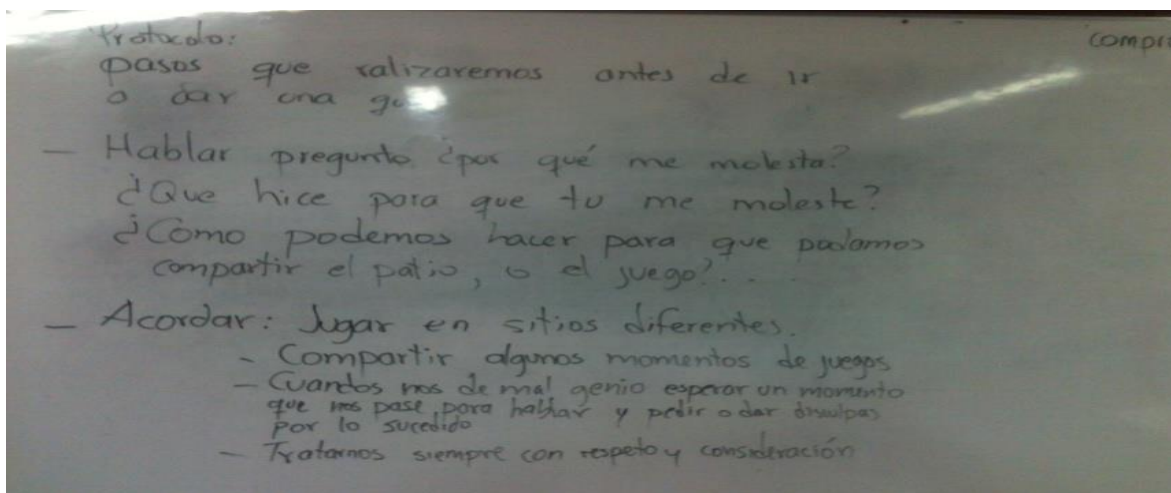 Protocolo:
pasos que ralizaremos antes de ir
o dar una
— Hablar pregunto ¿por qué me molesta?
¿Que hice para que tu me moleste?
¿Como podemos hacer para que podamos
compartir el patio, o el juego?...
— Acordar: Jugar en sitios diferentes.
- Compartir algunos momentos de juegos
- Cuandos nos de mal genio esperar un momento
que nos pase, para hablar y pedir o dar disculpas
por lo sucedido
- Tratarnos siempre con respeto y consideración